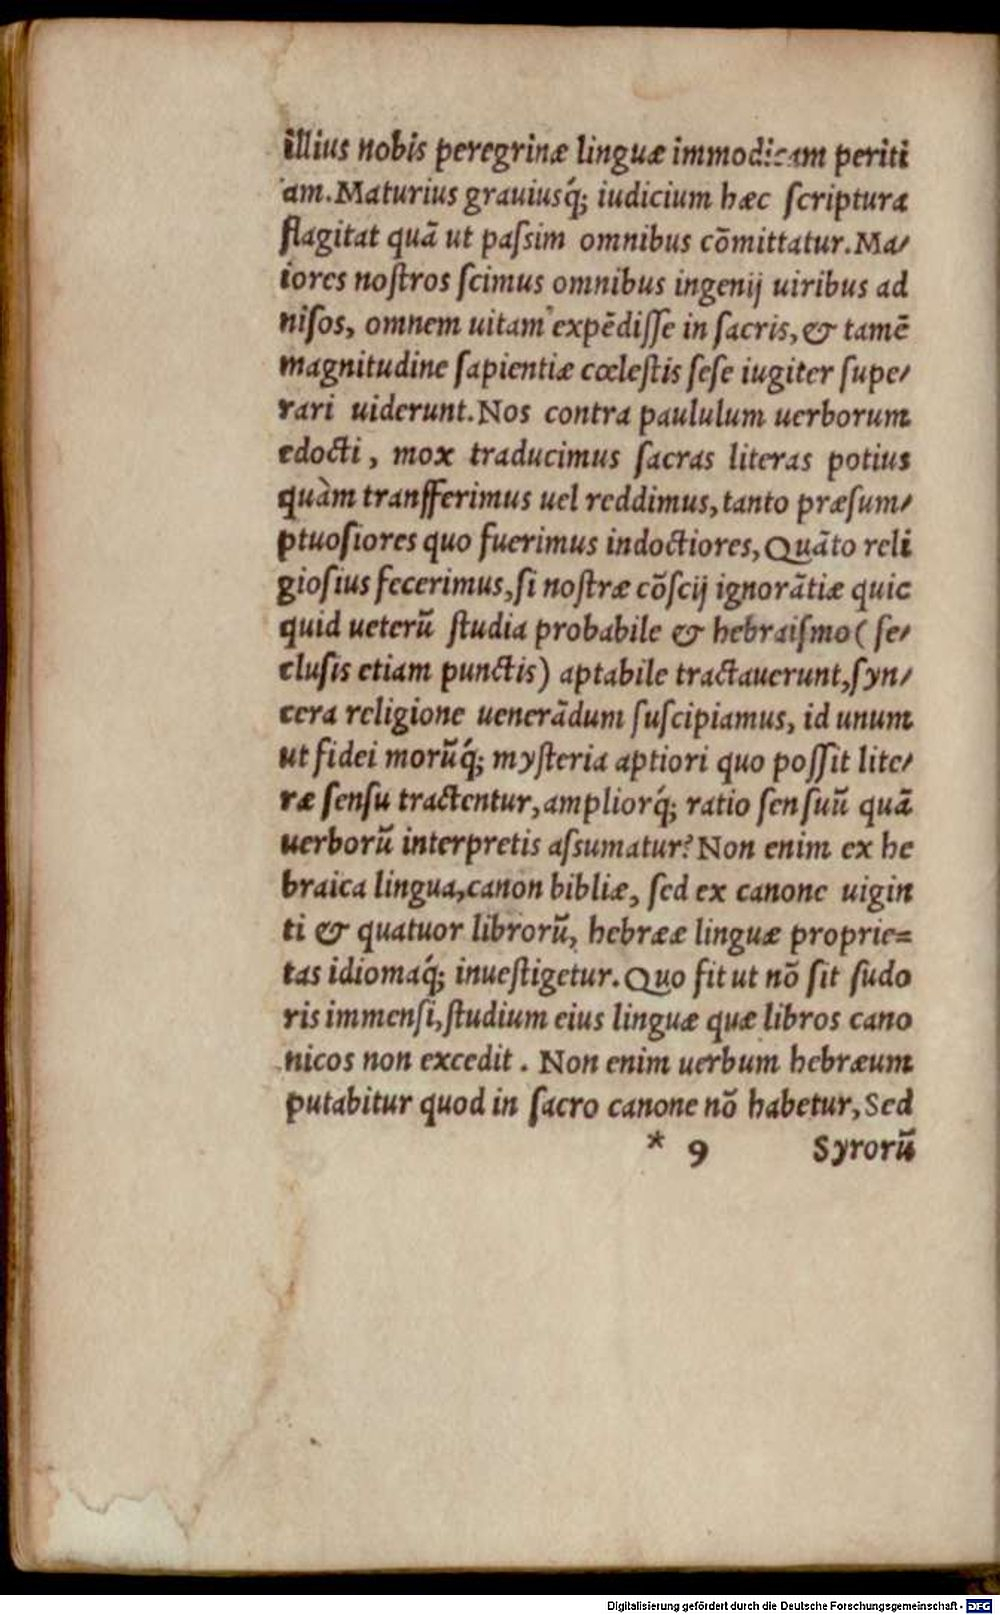 illius nobis peregrinæ linguæ immodicam periti
am. Maturius grauiusq́; iudicium hæc ſcriptura
flagitat quā ut paſsim omnibus cōmittatur. Ma⸗
iores noſtros ſcimus omnibus ingenij uiribus ad
niſos, omnem uitam expēdiſſe in ſacris, & tamē
magnitudine ſapientiæ cœleſtis ſeſe iugiter ſupe⸗
rari uiderunt. Nos contra paululum uerborum
edocti, mox traducimus ſacras literas potius
quàm tranſferimus uel reddimus, tanto præſum⸗
ptuoſiores quo fuerimus indoctiores, Quāto reli
gioſius fecerimus, ſi noſtræ cōſcij ignorātiæ quic
quid ueterū ſtudia probabile & hebraiſmo (ſe⸗
cluſis etiam punctis) aptabile tractauerunt, ſyn⸗
cera religione uenerādum ſuſcipiamus, id unum
ut fidei morūq́; myſteria aptiori quo poſſit lite⸗
ræ ſenſu tractentur, ampliorq́; ratio ſenſuū quā
uerborū interpretis aſsumatur? Non enim ex he
braica lingua, canon bibliæ, ſed ex canone uigin
ti & quatuor librorū, hebrææ linguæ proprie⸗
tas idiomaq́; inueſtigetur. Quo fit ut nō ſit ſudo
ris immenſi, ſtudium eius linguæ quæ libros cano
nicos non excedit. Non enim uerbum hebræum
putabitur quod in ſacro canone nō habetur, Sed
* 9 Syrorū
Digitalisierung gefördert durch die Deutsche Forschungsgemeinschaft - DFG